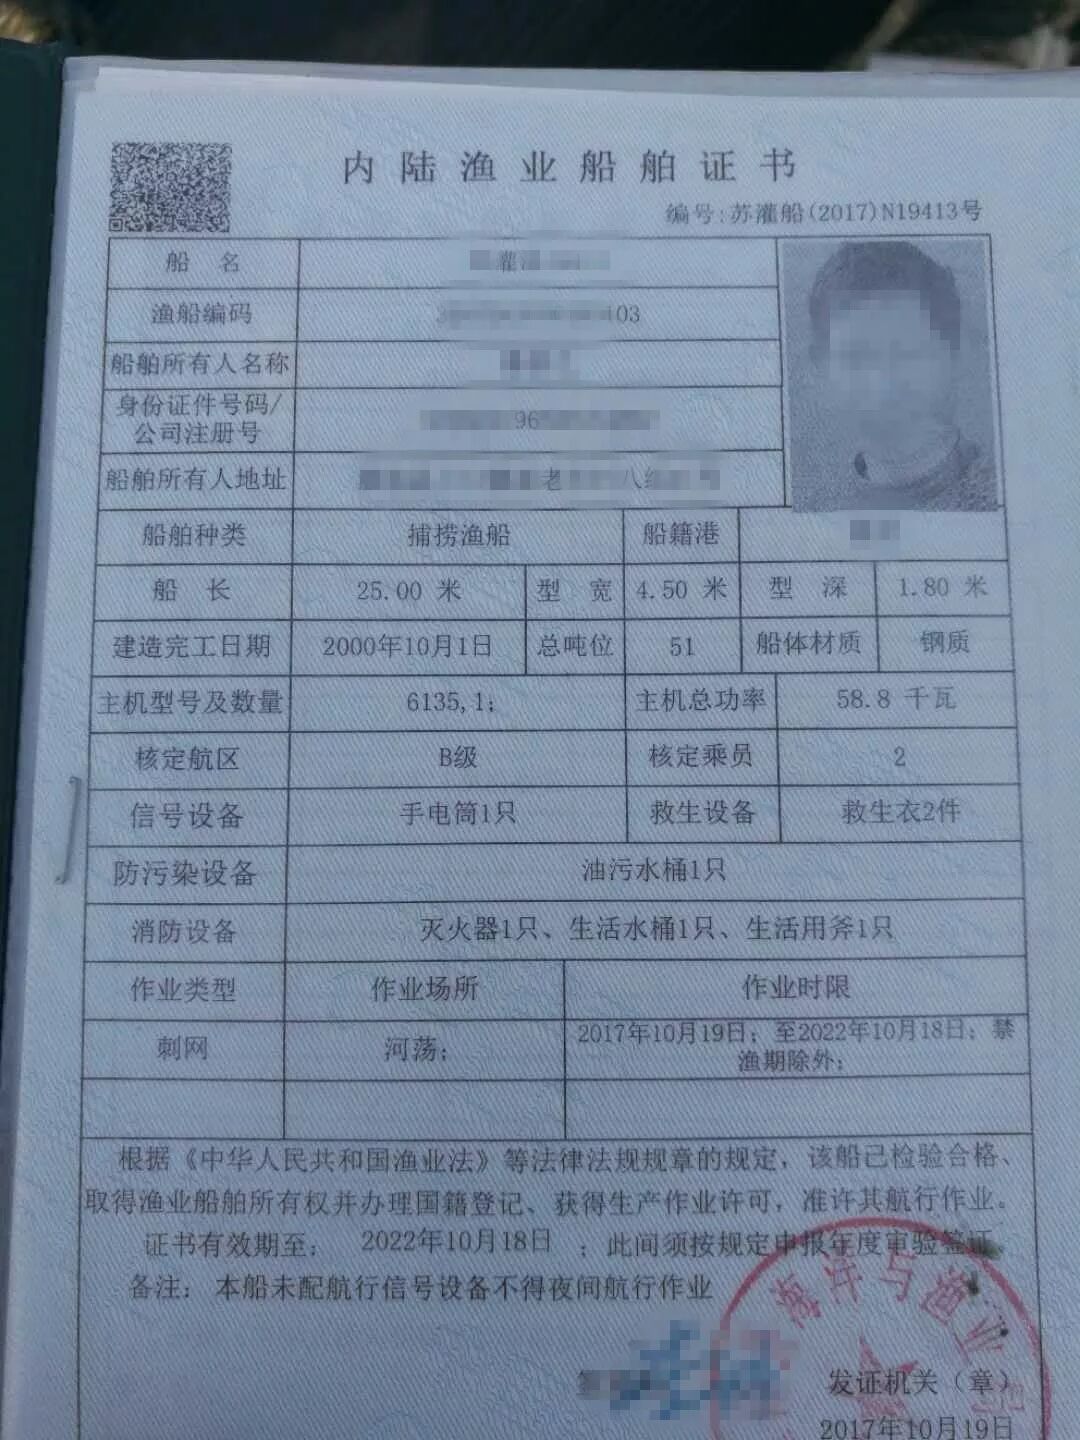 内陆渔业船舶证书
编号:苏灌船(2017)N19413号
船 名
渔船编码 103
船舶所有人名称
身份证件号码/
公司注册号 96
船舶所有人地址 老 八组
船舶种类 捕捞渔船 船籍港
船 长 25.00 米 型 宽 4.50 米 型 深 1.80 米
建造完工日期 2000年10月1日 总吨位 51 船体材质 钢质
主机型号及数量 6135,1; 主机总功率 58.8 千瓦
核定航区 B级 核定乘员 2
信号设备 手电筒1只 救生设备 救生衣2件
防污染设备 油污水桶1只
消防设备 灭火器1只、生活水桶1只、生活用斧1只
作业类型 作业场所 作业时限
刺网 河荡; 2017年10月19日; 至2022年10月18日; 禁
渔期除外;
根据《中华人民共和国渔业法》等法律法规规章的规定，该船已检验合格、
取得渔业船舶所有权并办理国籍登记、获得生产作业许可，准许其航行作业。
证书有效期至: 2022年10月18日 ；此间须按规定申报年度审验签证
备注: 本船未配航行信号设备不得夜间航行作业
海洋与渔业
发证机关（章）
2017年10月19日